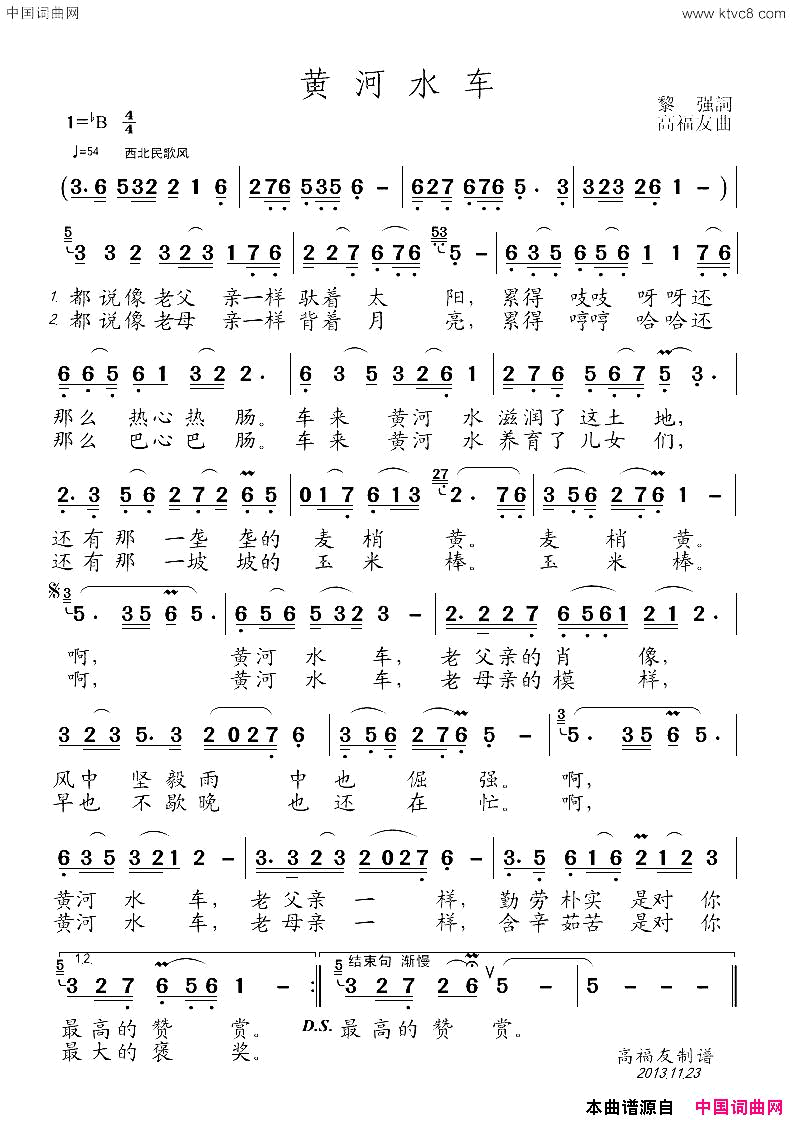 中国词曲网
www.ktvc8.com
黄河水车
1=♭B 4/4
黎 强詞
高福友曲
♩=54 西北民歌风
(3·6 532 2 1 6 | 276 535 6 - | 627 676 5· 3 | 323 261 - )
5 3 3 2 323 176 | 227 676 53 5 - | 635 656 1 1 76
1. 都说像老父 亲一样 驮着 太 阳, 累得 吱吱 呀呀还
2. 都说像老母 亲一样 背着 月 亮, 累得 哼哼 哈哈还
665 61 32 2· | 6 3 5 3261 | 276 567 5 3·
那么 热心 热 肠。车来 黄河 水 滋润了 这土 地,
那么 巴心 巴 肠。车来 黄河 水 养育了 儿女 们,
2·3 56 272 65 | 017 613 27 2· 76 | 356 276 1 -
还有那 一垄 垄的 麦梢 黄。 麦梢 黄。
还有那 一坡 坡的 玉米 棒。 玉米 棒。
𝄋 3 5· 356 5· | 656 532 3 - | 2·227 6561 21 2·
啊, 黄河 水 车, 老父亲的肖 像,
啊, 黄河 水 车, 老母亲的模 样,
323 5·3 2027 6 | 356 276 5 - | 3 5· 356 5·
风中 坚毅雨 中也 倔 强。 啊,
早也 不歇晚 也还 在 忙。 啊,
635 321 2 - | 3·323 2027 6 - | 3·5 616 2123
黄河 水 车, 老父亲 一 样, 勤劳朴实 是对 你
黄河 水 车, 老母亲 一 样, 含辛茹苦 是对 你
1.2. 5 327 656 1 - :‖ 结束句 渐慢 5 327 26 ∨ 5 - | 5 - - - ‖
最高的赞 赏。 D.S. 最高的赞 赏。
最大的褒 奖。
高福友制谱
2013.11.23
本曲谱源自 中国词曲网